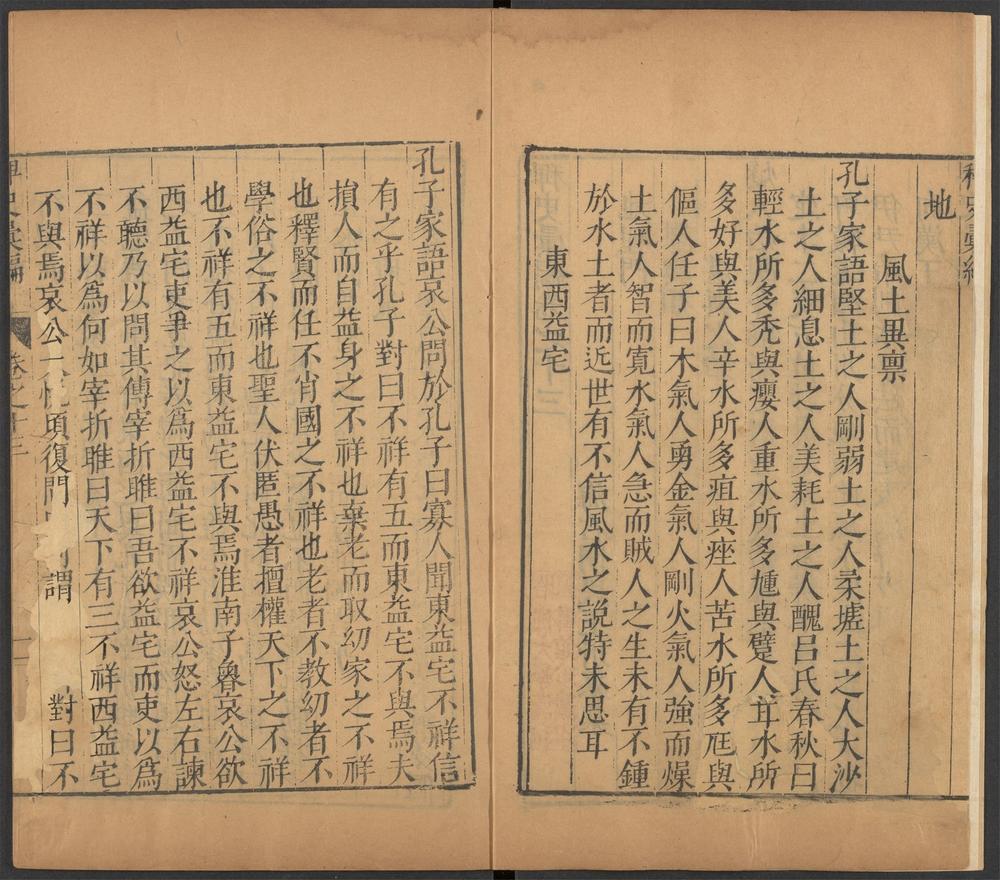 地
風土異禀
孔子家語堅土之人剛弱土之人柔壚土之人大沙
土之人細息土之人美耗土之人醜吕氏春秋曰
輕水所多禿與癭人重水所多尰與躄人甘水所
多好與美人辛水所多疽與痤人苦水所多尫與
傴人任子曰木氣人勇金氣人剛火氣人強而燥
土氣人智而寛水氣人急而賊人之生未有不鍾
於水土者而近世有不信風水之說特未思耳
東西益宅
孔子家語哀公問於孔子曰寡人聞東益宅不祥信
有之乎孔子對曰不祥有五而東益宅不與焉夫
損人而自益身之不祥也棄老而取幼家之不祥
也釋賢而任不肖國之不祥也老者不教幼者不
學俗之不祥也聖人伏匿愚者擅權天下之不祥
也不祥有五而東益宅不與焉淮南子魯哀公欲
西益宅吏爭之以爲西益宅不祥哀公怒左右諫
不聽乃以問其傅宰折睢曰吾欲益宅而吏以爲
不祥以爲何如宰折睢曰天下有三不祥西益宅
不與焉哀公大悅頃復問 謂 對曰不
卷之十三